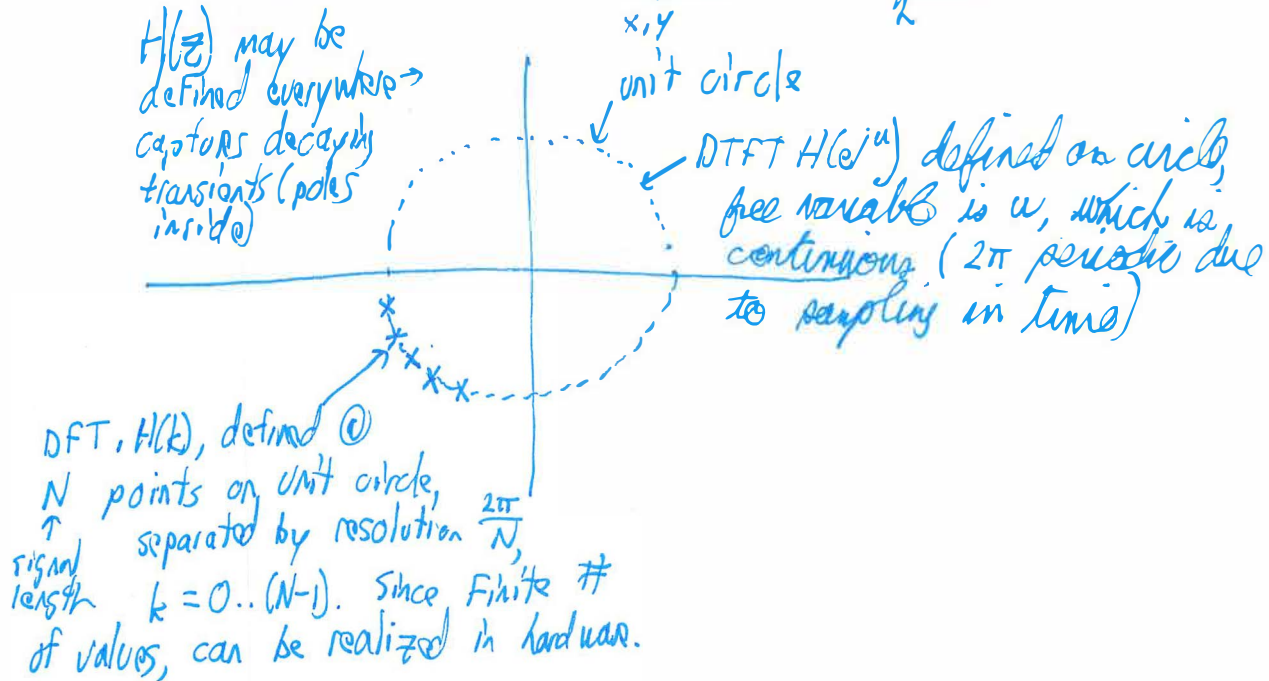 x,y
2
H(z) may be
defined everywhere →
capturs decaying
transients (poles
inside)
unit circle
DTFT H(e^ju) defined on circle,
free variable is u, which is
continuous. (2π periodic due
to sampling in time)
DFT, H(k), defined @
N points on unit circle,
↑ separated by resolution 2π/N,
signal
length k = 0..(N-1). Since Finite #
of values, can be realized in hardware.